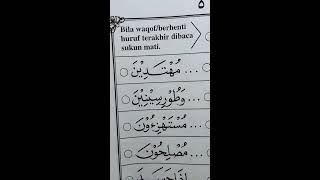 ٥
Bila waqof/berhenti
huruf terakhir dibaca
sukun mati.
... مُهْتَدِيْنَ
... وَطُوْرِسِيْنِيْنَ
... مُسْتَهْزِءُوْنَ
... مُصْلِحُوْنَ